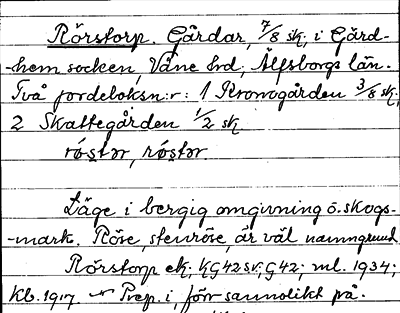 Rörstorp. Gårdar, 7/8 sk, i Gärd-
-hem socken, Väne hrd, Älfsborgs län.
Två jordeboksn:r: 1 Kronogården 3/8 sk;
2 Skattegården 1/2 sk
Läge i bergig omgivning o. skogs-
-mark. Röse, stenröse, är väl namngrund
Rörstorp ek; KG42SV; G42; ml. 1934;
Kb. 1917. Prep. i, förr sannolikt på.